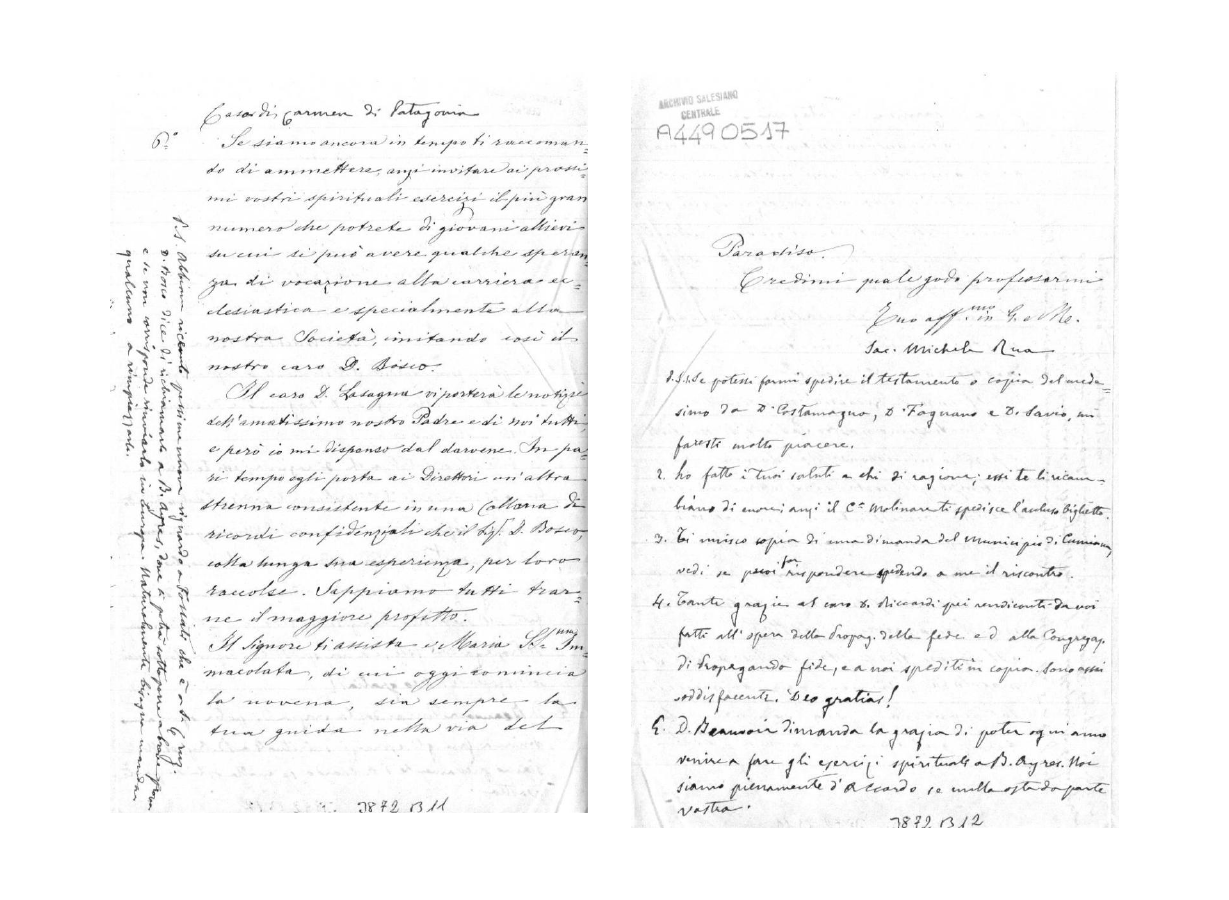 Casa di Carmen di Patagonia
6º
Se siamo ancora in tempo ti raccoman=
do di ammettere, anzi invitare ai prossi=
mi vostri spirituali esercizi il più gran
numero che potrete di giovani allievi
su cui si può avere qualche speran=
za di vocazione alla carriera ec=
clesiastica e specialmente alla
nostra Società, imitando così il
nostro caro D. Bosco.
Il caro D. Lasagna vi porterà le notizie
dell'amatissimo nostro Padre e di noi tutti
e però io mi dispenso dal darvene. In pa=
ri tempo egli porta ai Direttori un'altra
strenna consistente in una collana di
ricordi confidenziali che il Sig. D. Bosco,
colla lunga sua esperienza, per loro
raccolse. Sappiamo tutti trar=
ne il maggiore profitto.
Il Signore ti assista e Maria SS. Im=
macolata, di cui oggi comincia
la novena, sia sempre la
tua guida nella via del
P.S. Abbiam ricevuto pessime nuove riguardo a Fossati che è a
D. Bosco dice di richiamarlo a B. Ayres, dove è
e se non corrisponde rinviarlo in Europa. Naturalmente bisogna mandar
qualcuno a rimpiazzarlo.
J872 B11
ARCHIVIO SALESIANO
CENTRALE
A4490517
Paradiso.
Credimi quale godo professarmi
Tuo aff.mo in G. e M.
Sac. Michele Rua
P.S. 1. Se potessi farmi spedire il testamento o copia del mede=
simo da D. Costamagna, D. Fagnano e D. Savio, mi
faresti molto piacere.
2. ho fatto i tuoi saluti a chi di ragione; essi te li ricam=
biano di cuore; anzi il Molinari ti spedisce l'accluso biglietto.
3. Ti unisco copia di una dimanda del Municipio di Cumiana,
vedi se puoi far rispondere spedendo a me il riscontro.
4. Tante grazie al caro D. Riccardi pei rendiconti da voi
fatti all'opera della Propag. della fede e d alla Congregaz.
di Propaganda fide, e a noi spediti in copia. Sono assai
soddisfacente. Deo gratias!
5. D. Beauvoir dimanda la grazia di poter ogni anno
venire a fare gli esercizi spirituali a B. Ayres. Noi
siamo pienamente d'accordo se nulla osta da parte
vostra.
J872 B12